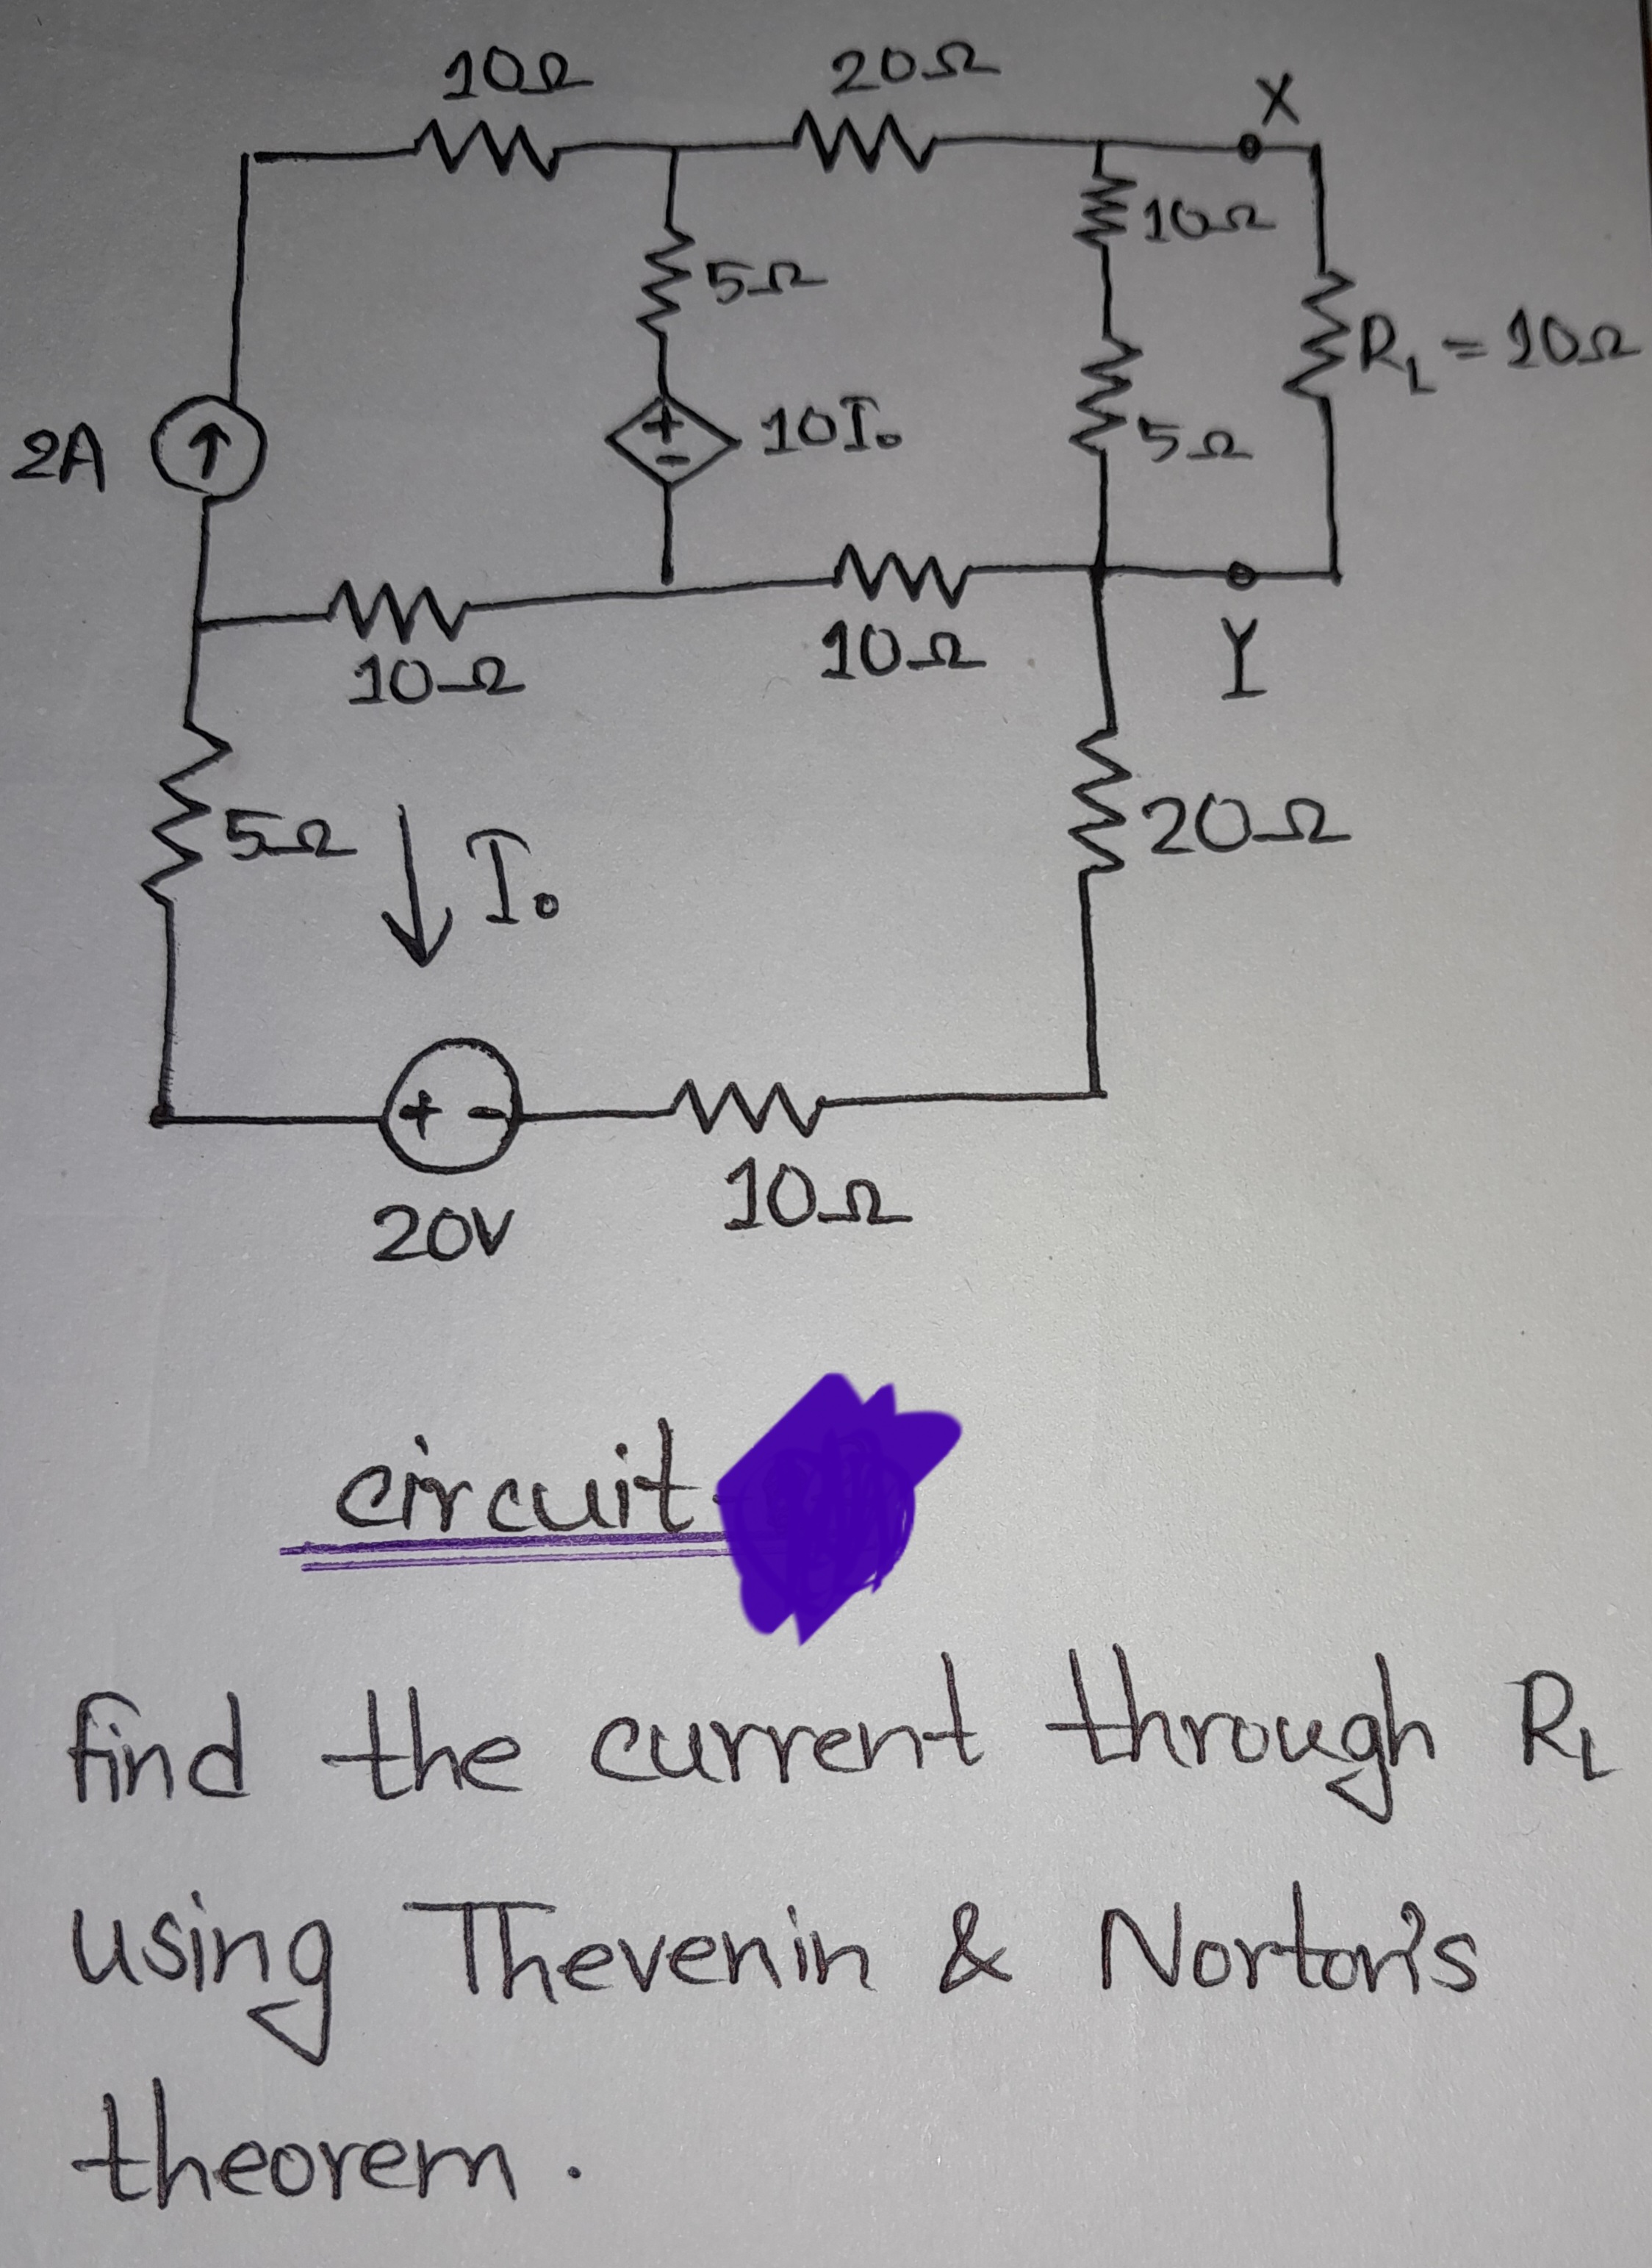 10Ω 20Ω X
10Ω
5Ω
R_L = 10Ω
2A
+
-
10I₀
5Ω
10Ω
10Ω
Y
5Ω
I₀
20Ω
+ -
20V
10Ω
circuit
find the current through R_L
using Thevenin & Norton's
theorem.